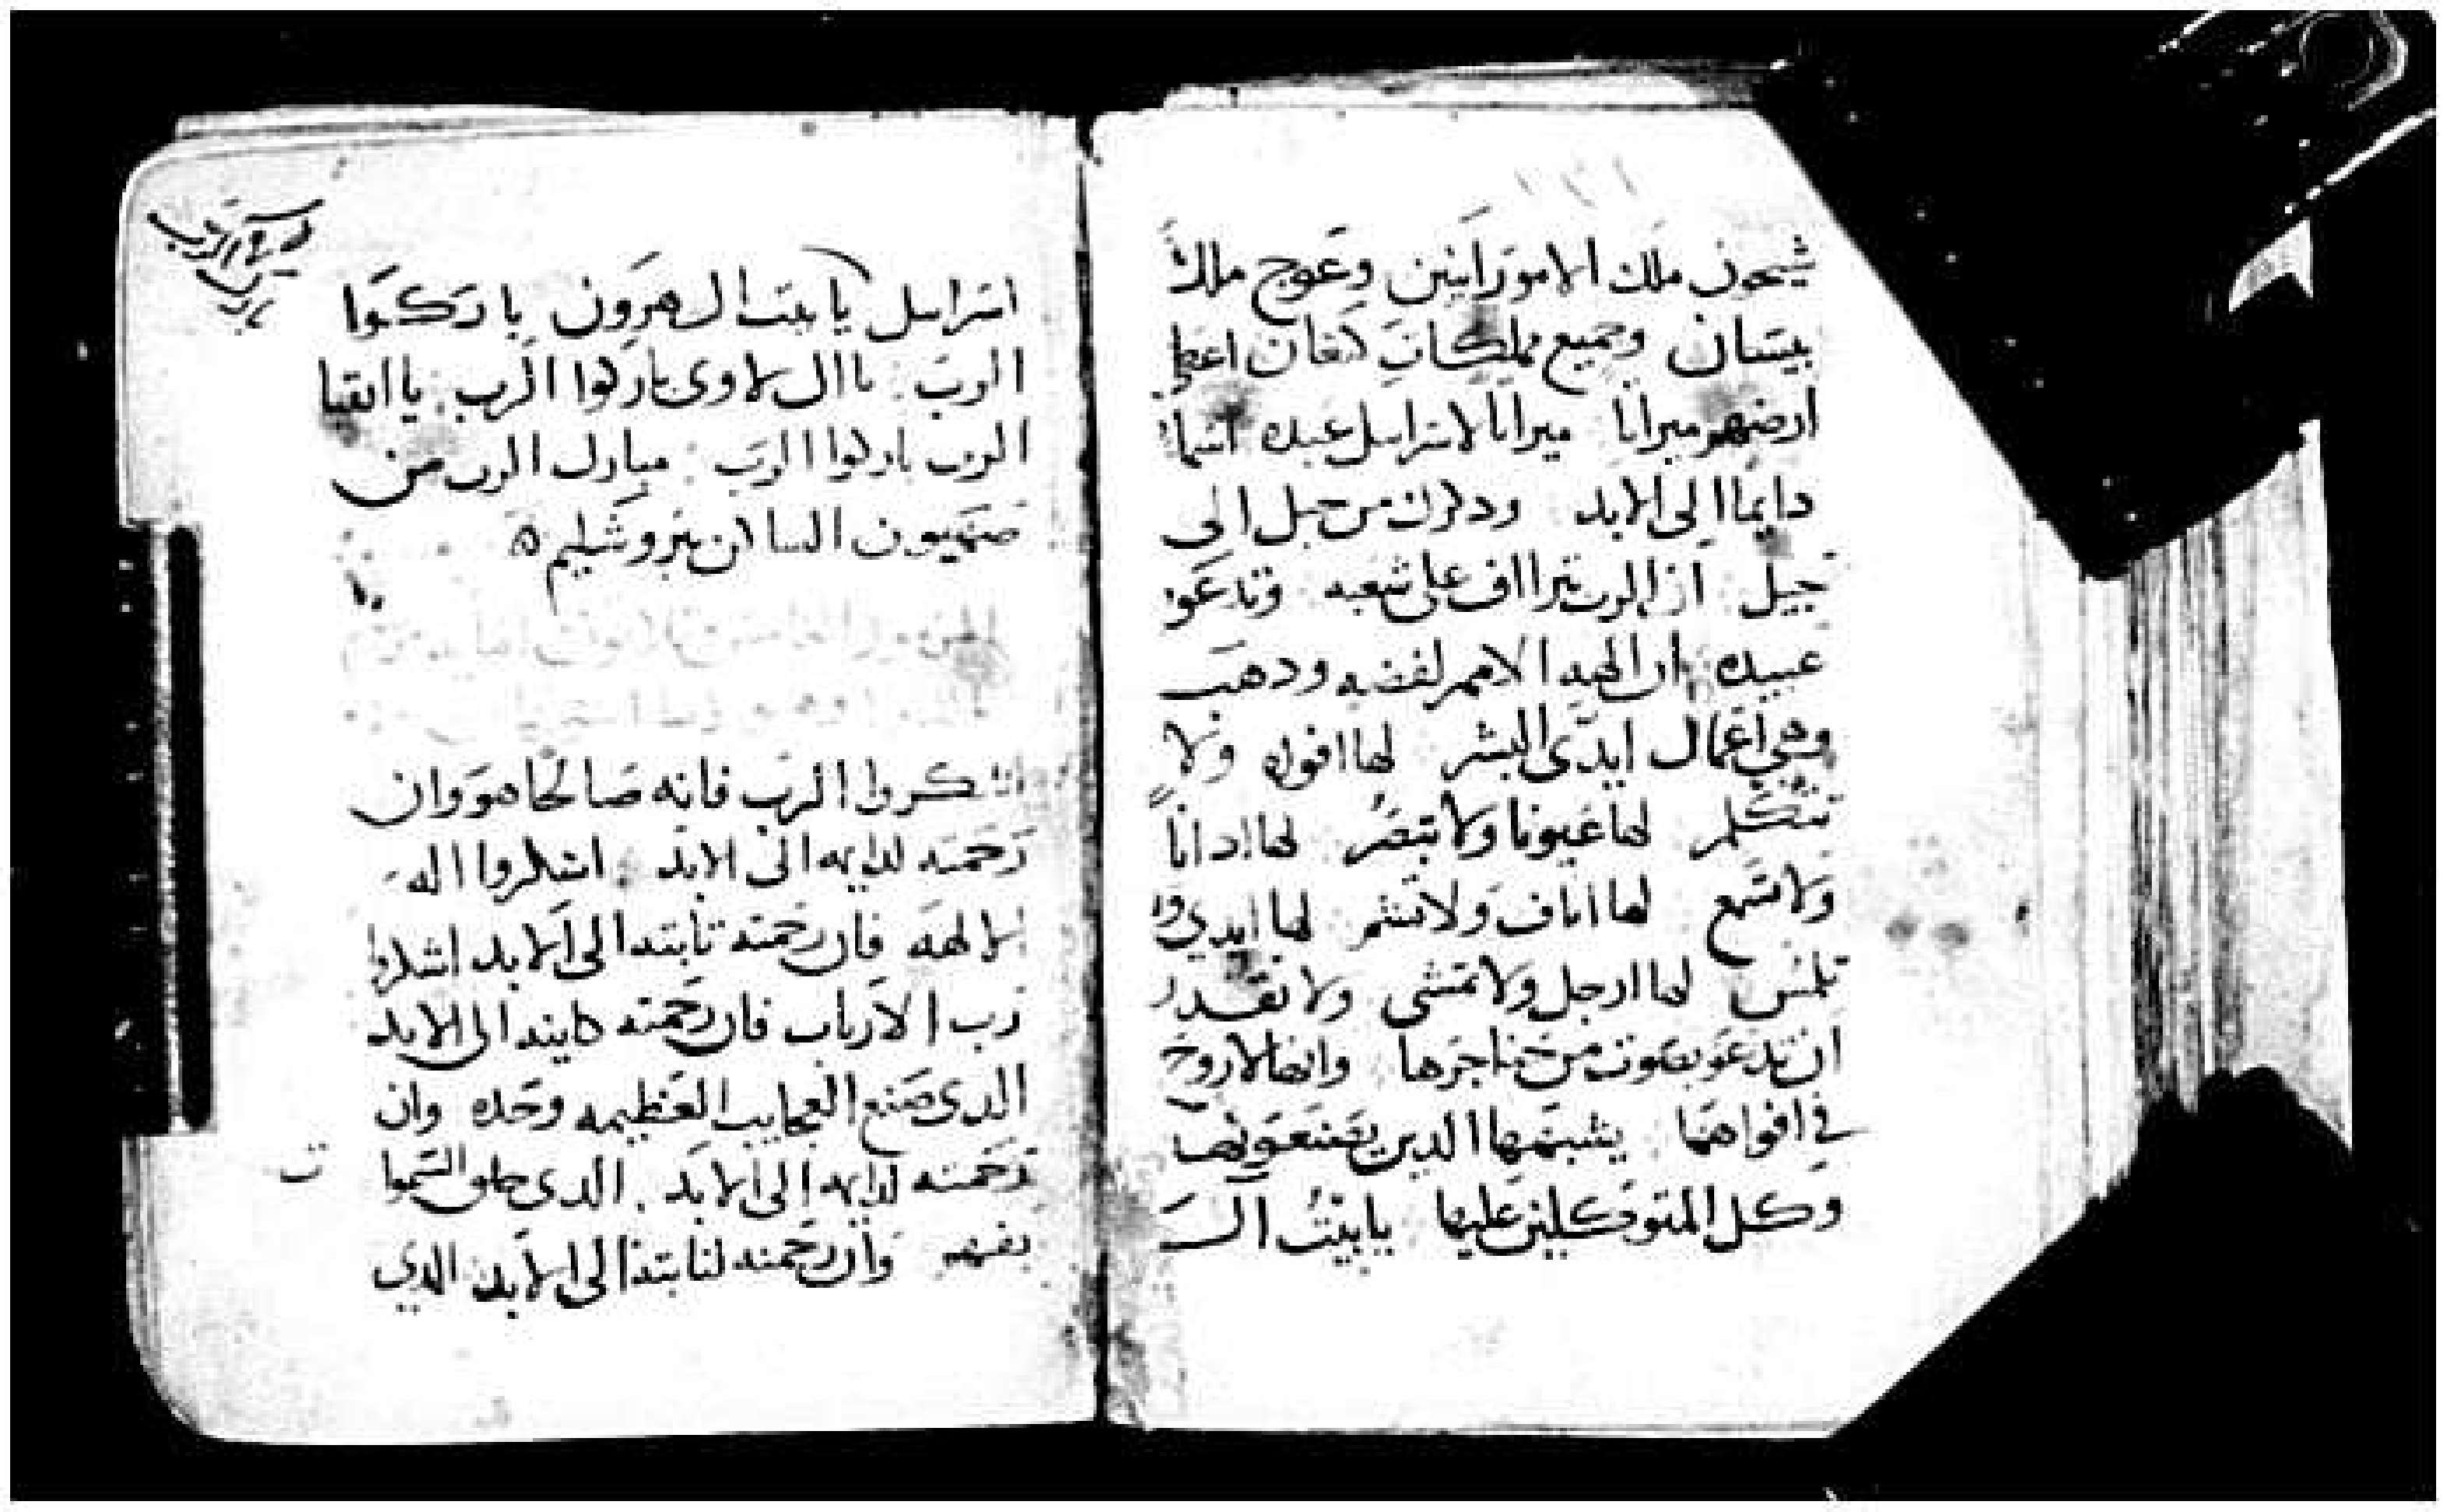 شيحون ملك الامورانيين وعوج ملك
بيسان وجميع مملكات كنعان اعطى
ارضهم ميراثا ميراثا لاسراييل عبده اسمك
دايما الى الابد وذكرك من جيل الى
جيل ان الرب يتراف على شعبه وتدعو
عبيده ان الهة الامم لفضه ودهب
وهي اعمال ايدى البشر لها افواه ولا
تتكلم لها عيونا ولا تبصر لها ادانا
ولا تسمع لها اناف ولا تشم لها ايدي ولا
تلمس لها ارجل ولا تمشى ولا تقدر
ان تدعو بصوت من حناجرها وانها لا روح
في افواهها يشبهها الدين يصنعونها
وكل المتوكلين عليها يا بيت ال
اسراييل يا بيت ال هرون باركوا
الرب يا ال لاوى باركوا الرب يا اتقيا
الرب باركوا الرب مبارك الرب من
صهيون الساكن يروشليم
اشكروا الرب فانه صالحا هو وان
رحمته لدايمه الى الابد اشكروا اله
الالهه فان رحمته تابته الى الابد اشكروا
رب الارباب فان رحمته كاينه الى الابد
الدى صنع العجايب العظيمه وحده وان
رحمته لدايمه الى الابد الدى خلق السموا
بفهم وان رحمته لتابته الى الابد الدي